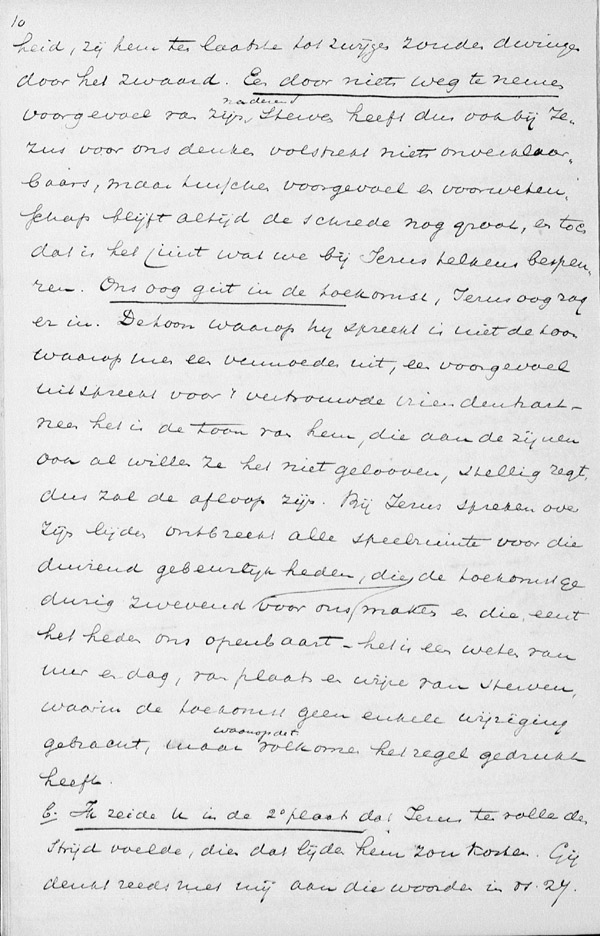 10
heid, zij hem ten laatste tot zwijgen zonder dwingen
door het zwaard. Een door niets weg te nemen
naderend
voorgevoel van zijn, sterven heeft dus ook bij Je-
zus voor ons denken volstrekt niets onverklaar-
baars, maar tusschen voorgevoel en voorweten-
schap blijft altijd de schrede nog groot, en toch
dat is het juist wat we bij Jezus telkens bespeu-
ren. Ons oog gist in de toekomst, Jezus oog zag
er in. De toon waarop hij spreekt is niet de toon
waarop men een vermoeden uit, een voorgevoel
uitspreekt voor 't vertrouwde vriendenhart -
neen het is de toon van hem, die aan de zijnen
ook al willen ze het niet gelooven, stellig zegt,
dus zal de afloop zijn. Bij Jezus spreken over
zijn lijden ontbreekt alle speelruimte voor die
duizend gebeurlijkheden, die de toekomst ge
durig zwevend voor ons maken en die eerst
het heden ons openbaart - het is een weten van
uur en dag, van plaats en wijze van sterven,
waarin de toekomst geen enkele wijziging
waarop dat
gebracht, maar volkomen het zegel gedrukt
heeft.
b. Ik zeide U in de 2e plaats dat Jezus ten volle den
strijd voelde, dien dat lijden hem zou kosten. Gij
denkt reeds met mij aan die woorden in vs. 27.